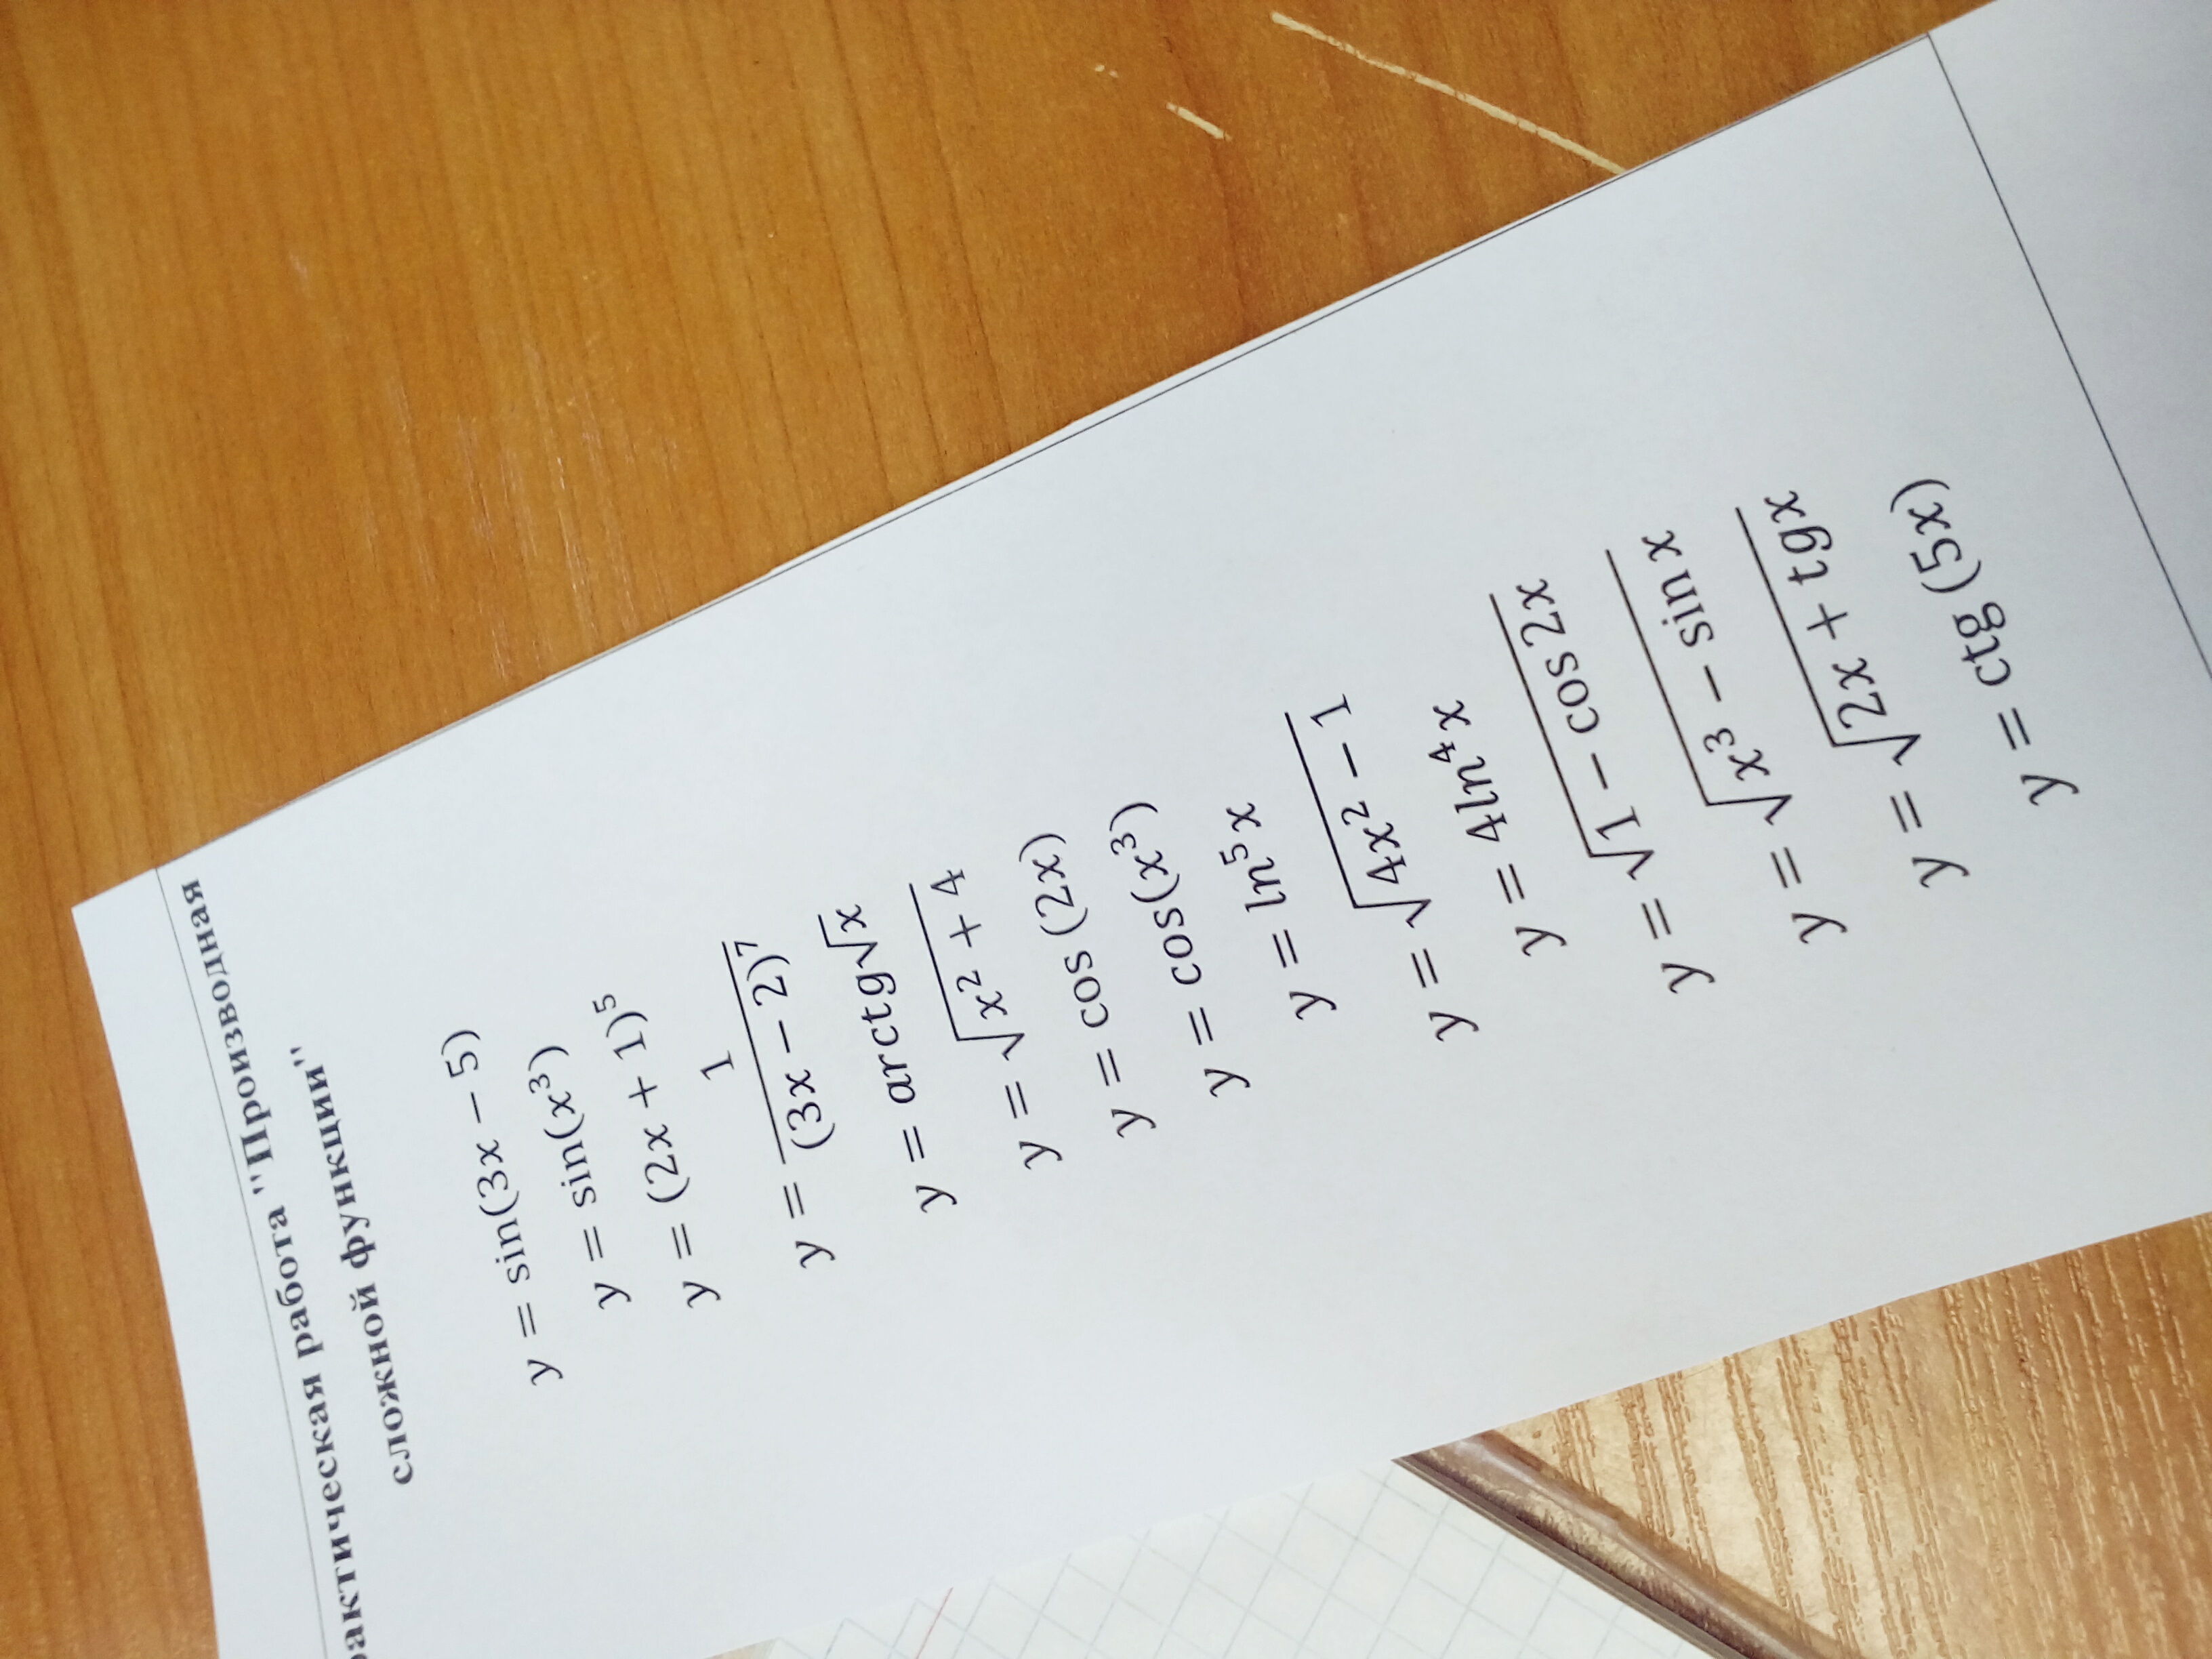 рактическая работа "Производная
сложной функции"
y = sin(3x − 5)
y = sin(x³)
y = (2x + 1)⁵
y = 1/(3x − 2)⁷
y = arctg√x
y = √(x² + 4)
y = cos(2x)
y = cos(x³)
y = ln⁵x
y = √(4x² − 1)
y = 4ln⁴x
y = √(1 − cos 2x)
y = √(x³ − sin x)
y = √(2x + tgx)
y = ctg(5x)